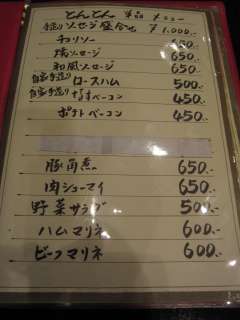 とんとん 単品 メニュー
手造りソセージ盛合せ ￥1,000.-
チョリソー 650.-
焼ソセージ 650.-
和風ソセージ 650.-
自家手造り ロースハム 500.-
自家手造り なまベーコン 450.-
ポテトベーコン 450.-
豚角煮 650.-
肉シューマイ 650.-
野菜サラダ 500.-
ハムマリネ 600.-
ビーフマリネ 600.-